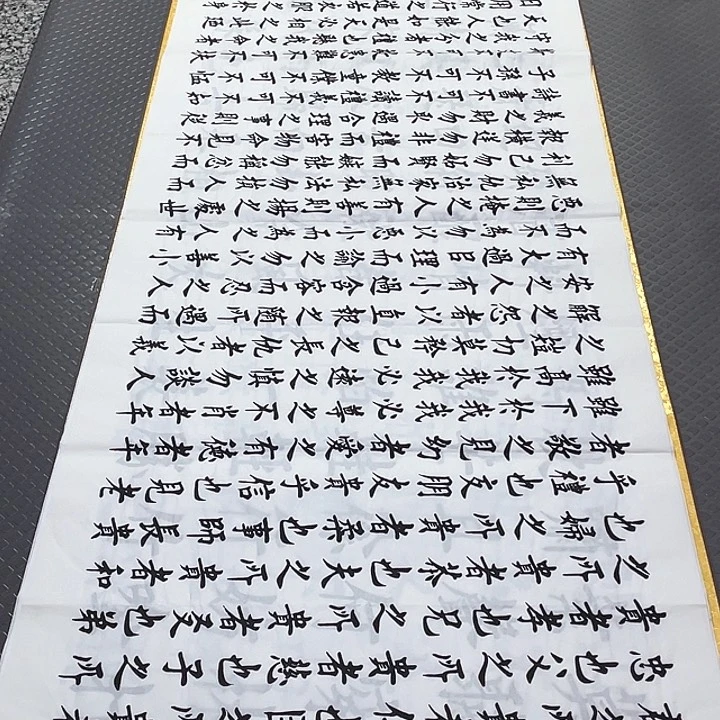 君之所貴者仁也臣之所貴者
忠也父之所貴者慈也子之所
貴者孝也兄之所貴者友也弟
之所貴者恭也夫之所貴者和
也婦之所貴者柔也事師長貴
乎禮也交朋友貴乎信也見老
者敬之見幼者愛之有德者年
雖下於我我必尊之不肖者年
雖高於我我必遠之慎勿談人
之短切莫矜己之長仇者以義
解之怨者以直報之隨所遇而
安之人有小過含容而忍之人
有大過以理而諭之勿以善小
而不為勿以惡小而為之人有
惡則掩之人有善則揚之處世
無私仇治家無私法勿損人而
利己勿妒賢而嫉能勿稱忿而
報橫逆勿非禮而害物命見不
義之財勿取遇合理之事則從
詩書不可不讀禮義不可不知
子孫不可不教童僕不可不恤
斯文不可不敬患難不可不扶
守我之分者禮也聽我之命者
天也人能如是天必相之此乃
日用常行之道若衣服之於身